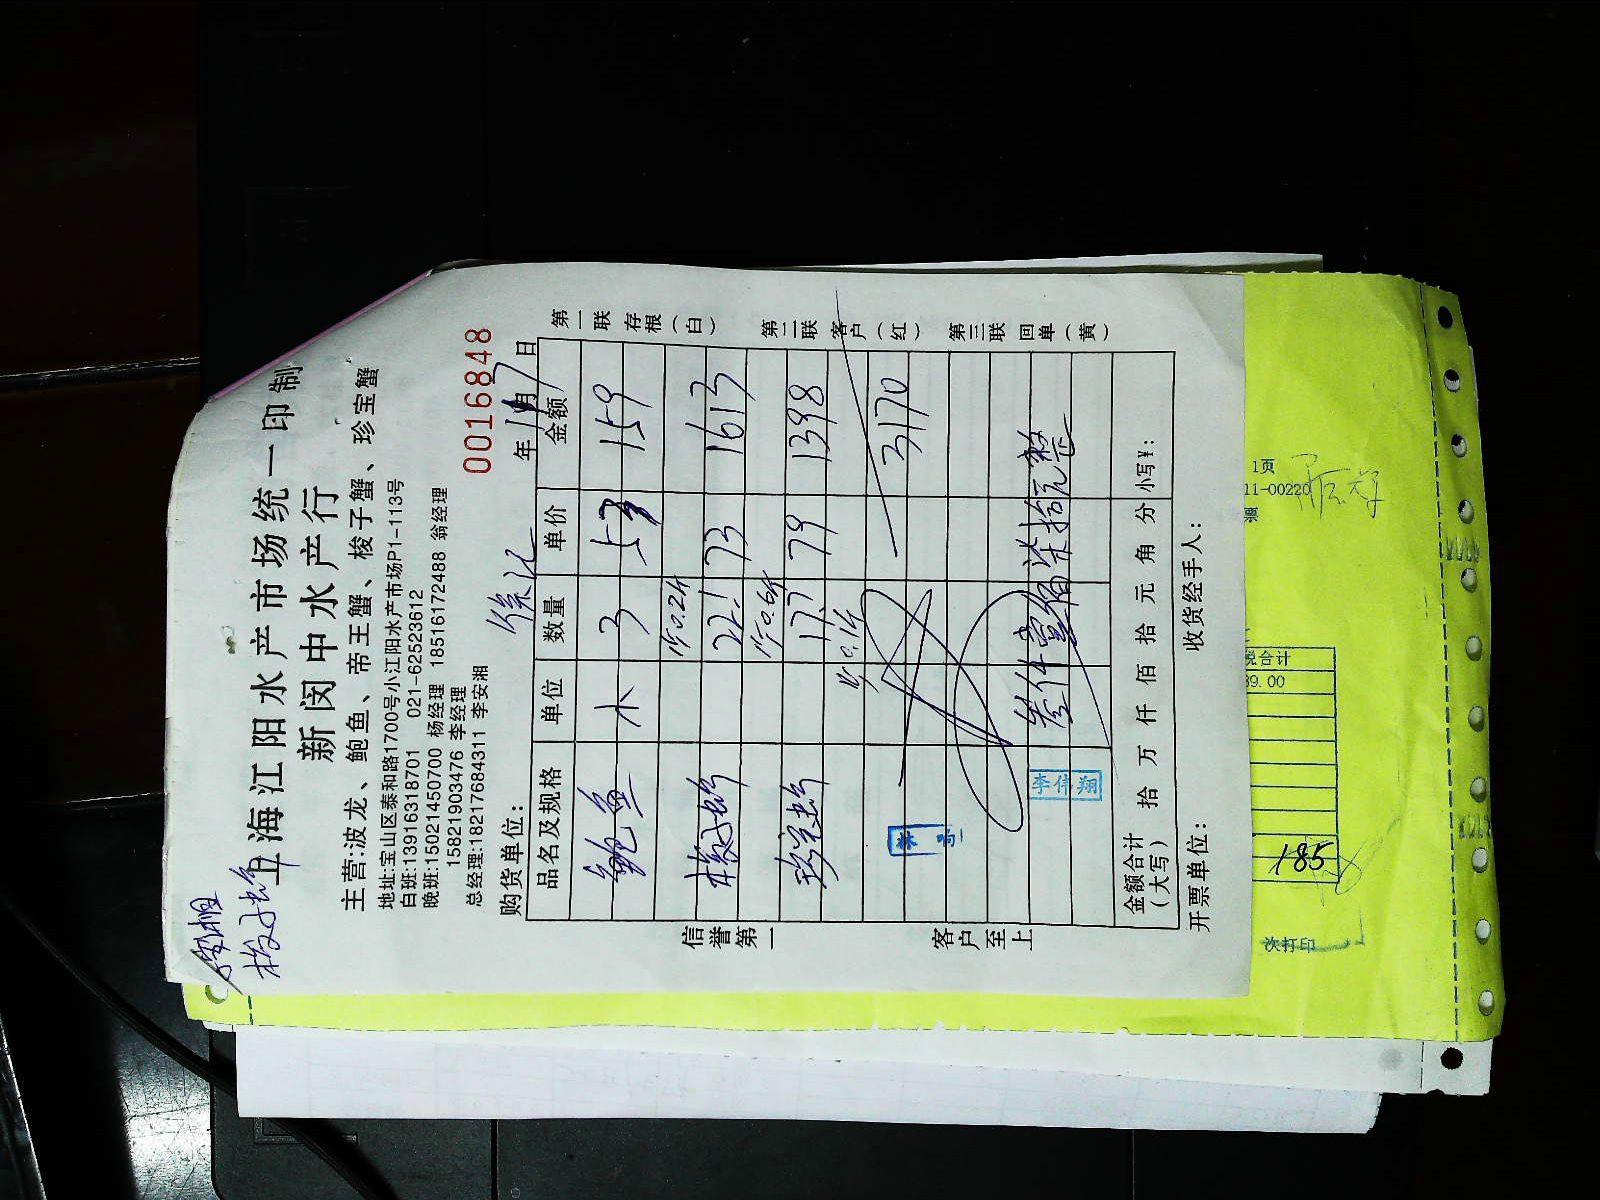 李湘
梭子蟹
上海江阳水产市场统一印制
新闵中水产行
主营:波龙、鲍鱼、帝王蟹、梭子蟹、珍宝蟹
地址:宝山区泰和路1700号小江阳水产市场P1-113号
白班:13916318701 021-62523612
晚班:15021450700 杨经理 18516172488 翁经理
15821903476 李经理
总经理:18217684311 李安湘
0016848
购货单位: 徐记 年 11月7日
品名及规格 单位 数量 单价 金额
鲍鱼 3 53 159
梭子蟹 22.1 73 1613
珍宝蟹 17.7 79 1398
3170
叁仟壹佰柒拾元整
李伟翔
金额合计
(大写) 拾 万 仟 佰 拾 元 角 分 小写¥:
开票单位: 收货经手人:
信誉第一
客户至上
第一联 存根(白)
第二联 客户(红)
第三联 回单(黄)
1页
11-00220
税合计
39.00
185
次打印